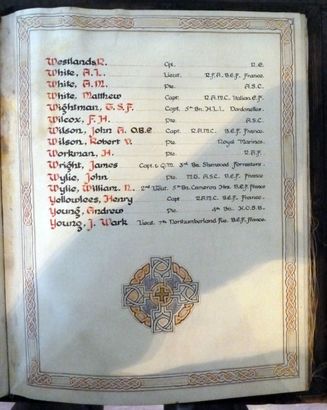 Westlands R. Cpt. R.E.
White, A.L. Lieut. R.F.A. B.E.F. France.
White, A.M. Pte. A.S.C.
White, Matthew Capt. R.A.M.C. Italian E.F.
Wightman, T.S.F. Capt. 5th Bn. H.L.I. Dardanelles.
Wilcox, F.H. Pte. A.S.C.
Wilson, John A. O.B.E Capt. R.A.M.C. B.E.F. France.
Wilson, Robert Pte. Royal Marines.
Workman, H. Pte. R.A.F.
Wright, James Capt. & Q.M. 3rd Bn. Sherwood Foresters.
Wylie, John Pte. M.D. A.S.C. B.E.F. France
Wylie, William 2nd Lieut. 5th Bn. Cameron Hrs. B.E.F. France
Yellowlees, Henry Capt R.A.M.C. B.E.F. France.
Young, Andrew Pte. 4th Bn. K.O.S.B.
Young, J. Wark Lieut. 7th Northumberland Fus. B.E.F. France.